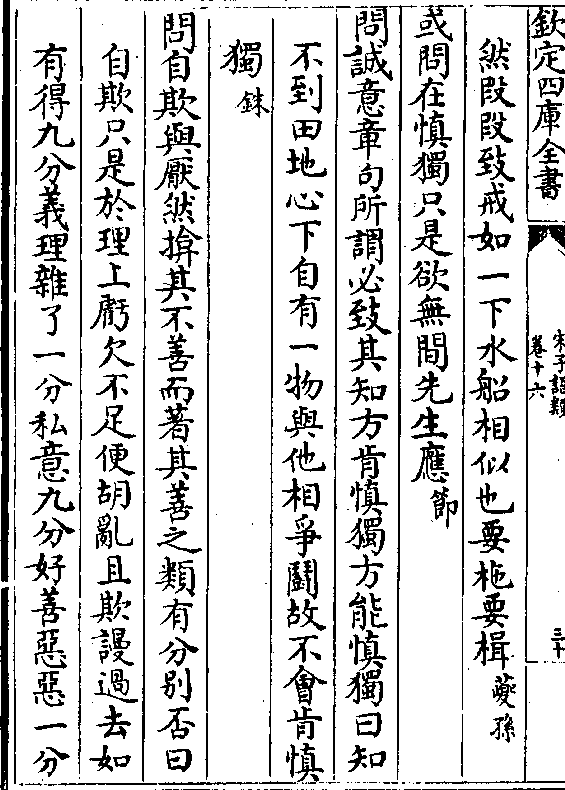 欽定四庫全書
朱子語類
卷十六
三十
然段段致戒如一下水船相似也要柂要楫 䕫孫
或問在慎獨只是欲無間先生應 節
問誠意章句所謂必致其知方肯慎獨方能慎獨曰知
不到田地心下自有一物與他相爭鬭故不會肯慎
獨 銖
問自欺與厭然揜其不善而著其善之類有分别否曰
自欺只是於理上虧欠不足便胡亂且欺謾過去如
有得九分義理雜了一分私意九分好善惡惡一分